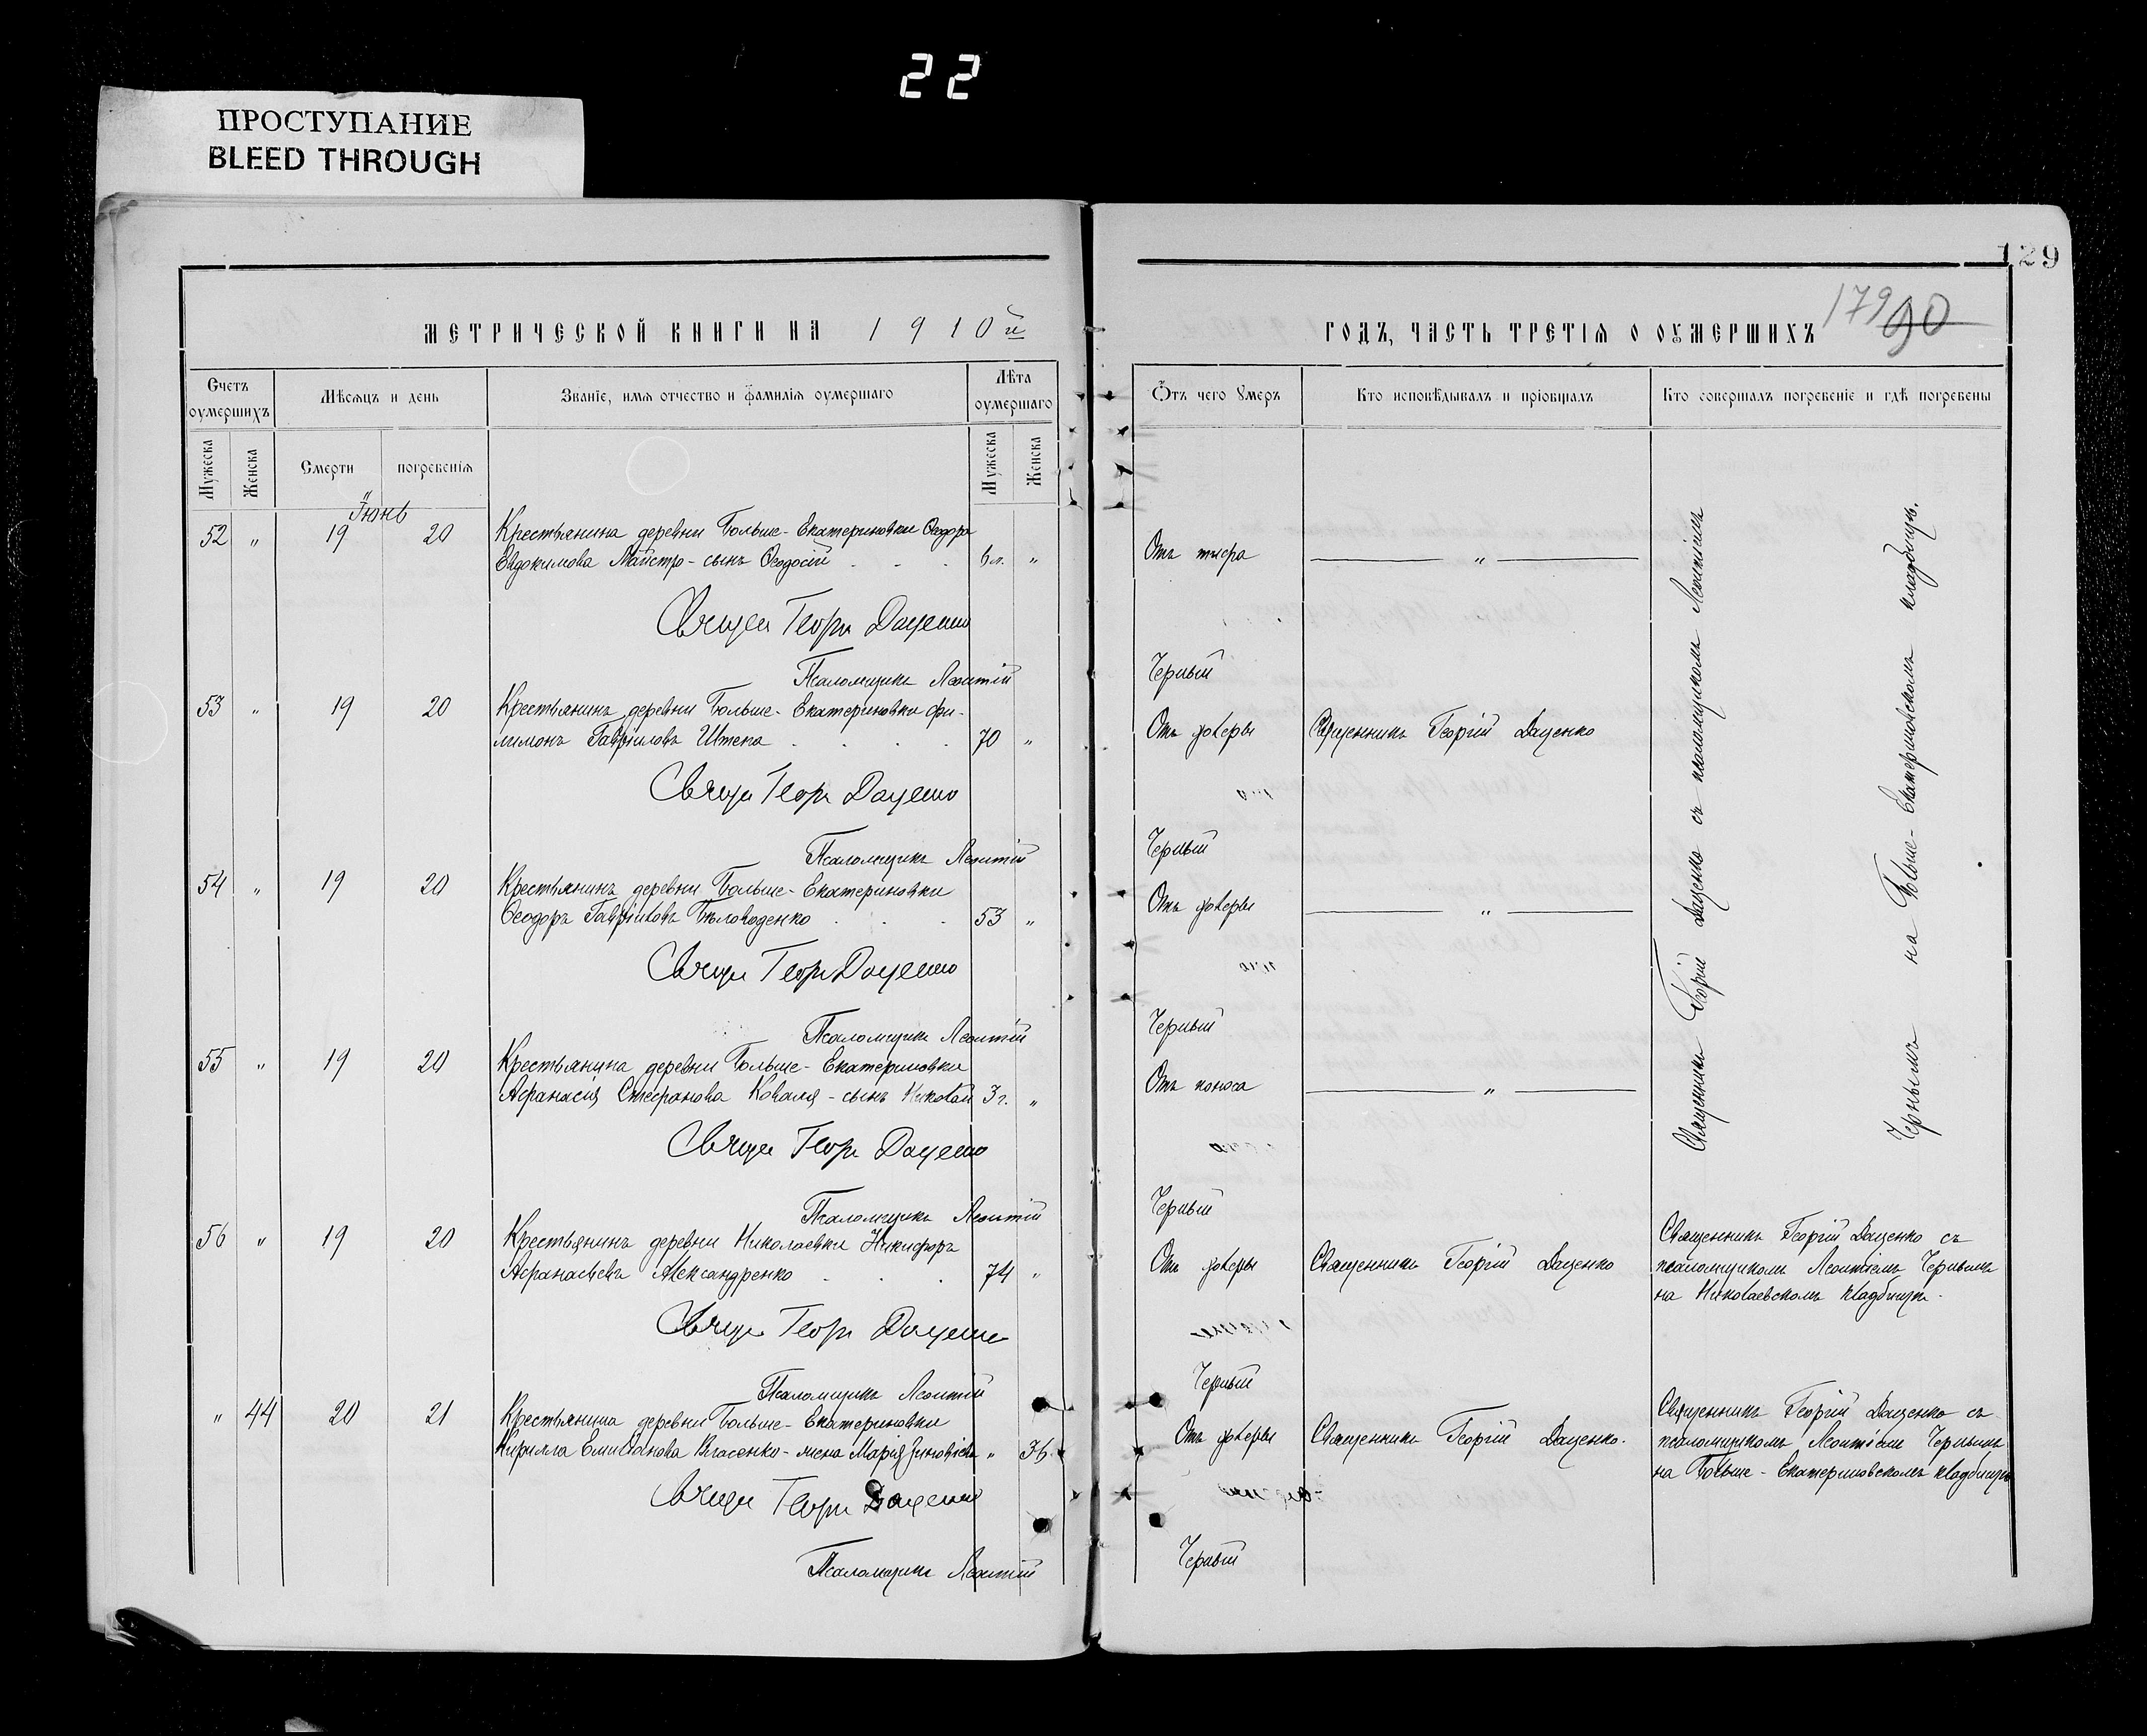 22
ПРОСТУПАНИЕ
BLEED THROUGH
129
МЕТРИЧЕСКОЙ КНИГИ НА 1910й
ГОДЪ, ЧАСТЬ ТРЕТІЯ О ОУМЕРШИХЪ
179 90
Счетъ оумершихъ
Мѣсяцъ и день
Званіе, имя отчество и фамилія оумершаго
Лѣта оумершаго
Отъ чего оумеръ
Кто исповѣдывалъ и пріобщалъ
Кто совершалъ погребеніе и гдѣ погребены
Мужеска
Женска
Смерти
погребенія
Мужеска
Женска
Іюнь
52 " 19 20 Крестьянина деревни Больше-Екатериновки Ѳеодора
Евдокимова Майстро - сынъ Ѳеодосій 6 л. " Отъ тифа "
Священ Георгій Даценко
Псаломщикъ Леонтій Черный
53 " 19 20 Крестьянинъ деревни Больше-Екатериновки Фи-
лимонъ Гавріиловъ Штепа 70 " Отъ холеры Священникъ Георгій Даценко
Свящ Георг Даценко
Псаломщикъ Леонтій Черный
54 " 19 20 Крестьянинъ деревни Больше-Екатериновки
Ѳеодоръ Гавріиловъ Бѣловоденко 53 " Отъ холеры "
Свящ Георг Даценко
Псаломщикъ Леонтій Черный
55 " 19 20 Крестьянина деревни Больше-Екатериновки
Афанасія Стефанова Коваля - сынъ Николай 3 г. " Отъ поноса "
Свящ Георг Даценко
Псаломщикъ Леонтій Черный
Священникъ Георгій Даценко съ псаломщикомъ Леонтіемъ
Чернымъ на Больше-Екатериновскомъ кладбищѣ.
56 " 19 20 Крестьянинъ деревни Николаевки Никифоръ
Афанасьевъ Александренко 74 " Отъ холеры Священникъ Георгій Даценко
Священникъ Георгій Даценко съ
псаломщикомъ Леонтіемъ Чернымъ
на Николаевскомъ кладбищѣ.
Свящ Георг Даценко
Псаломщикъ Леонтій Черный
" 44 20 21 Крестьянина деревни Больше-Екатериновки
Кирилла Емиліанова Власенко - жена Марія Зиновіева " 36 Отъ холеры Священникъ Георгій Даценко.
Священникъ Георгій Даценко съ
псаломщикомъ Леонтіемъ Чернымъ
на Больше-Екатериновскомъ кладбищѣ
Свящ Георг Даценко
Псаломщикъ Леонтій Черный